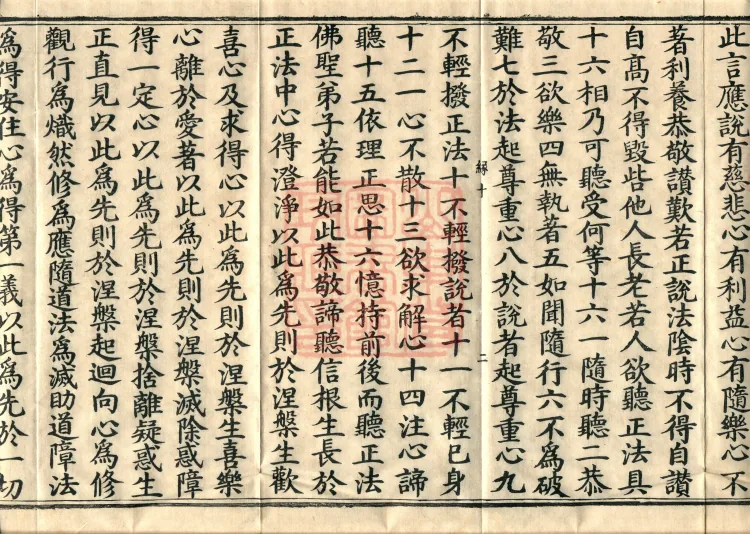 此言應說有慈悲心有利益心有隨樂心不
著利養恭敬讃歎若正說法陰時不得自讃
自髙不得毀呰他人長老若人欲聽正法具
十六相乃可聽受何等十六一隨時聽二恭
敬三欲樂四無執著五如聞隨行六不為破
難七於法起尊重心八於說者起尊重心九
緣十
二
不輕撥正法十不輕撥說者十一不輕已身
十二一心不散十三欲求解心十四注心諦
聽十五依理正思十六憶持前後而聽正法
佛聖弟子若能如此恭敬諦聽信根生長於
正法中心得澄淨以此為先則於涅槃生歡
喜心及求得心以此為先則於涅槃生喜樂
心離於愛著以此為先則於涅槃滅除惑障
得一定心以此為先則於涅槃捨離疑惑生
正直見以此為先則於涅槃起迴向心為修
觀行為熾然修為應隨道法為滅助道障法
為得安住心為得第一義以此為先於一切